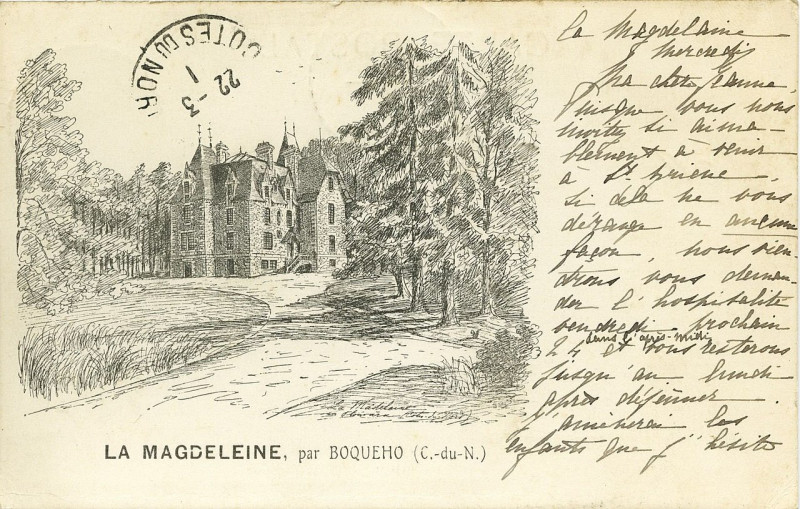 COTES DU NOR
1
22 - 3
LA MAGDELEINE, par BOQUEHO (C.-du-N.)
La Magdelaine
Mercredi
Ma chère Jeanne,
Puisque vous nous
invitez si aima-
blement à venir
à St Brieuc,
si cela ne vous
dérange en aucune
façon, nous vien-
drons vous deman-
der l'hospitalité
vendredi prochain
dans l'après-midi
24 et vous resterons
jusqu'au lundi
après déjeuner.
J'amènerai les
enfants que j'hésite